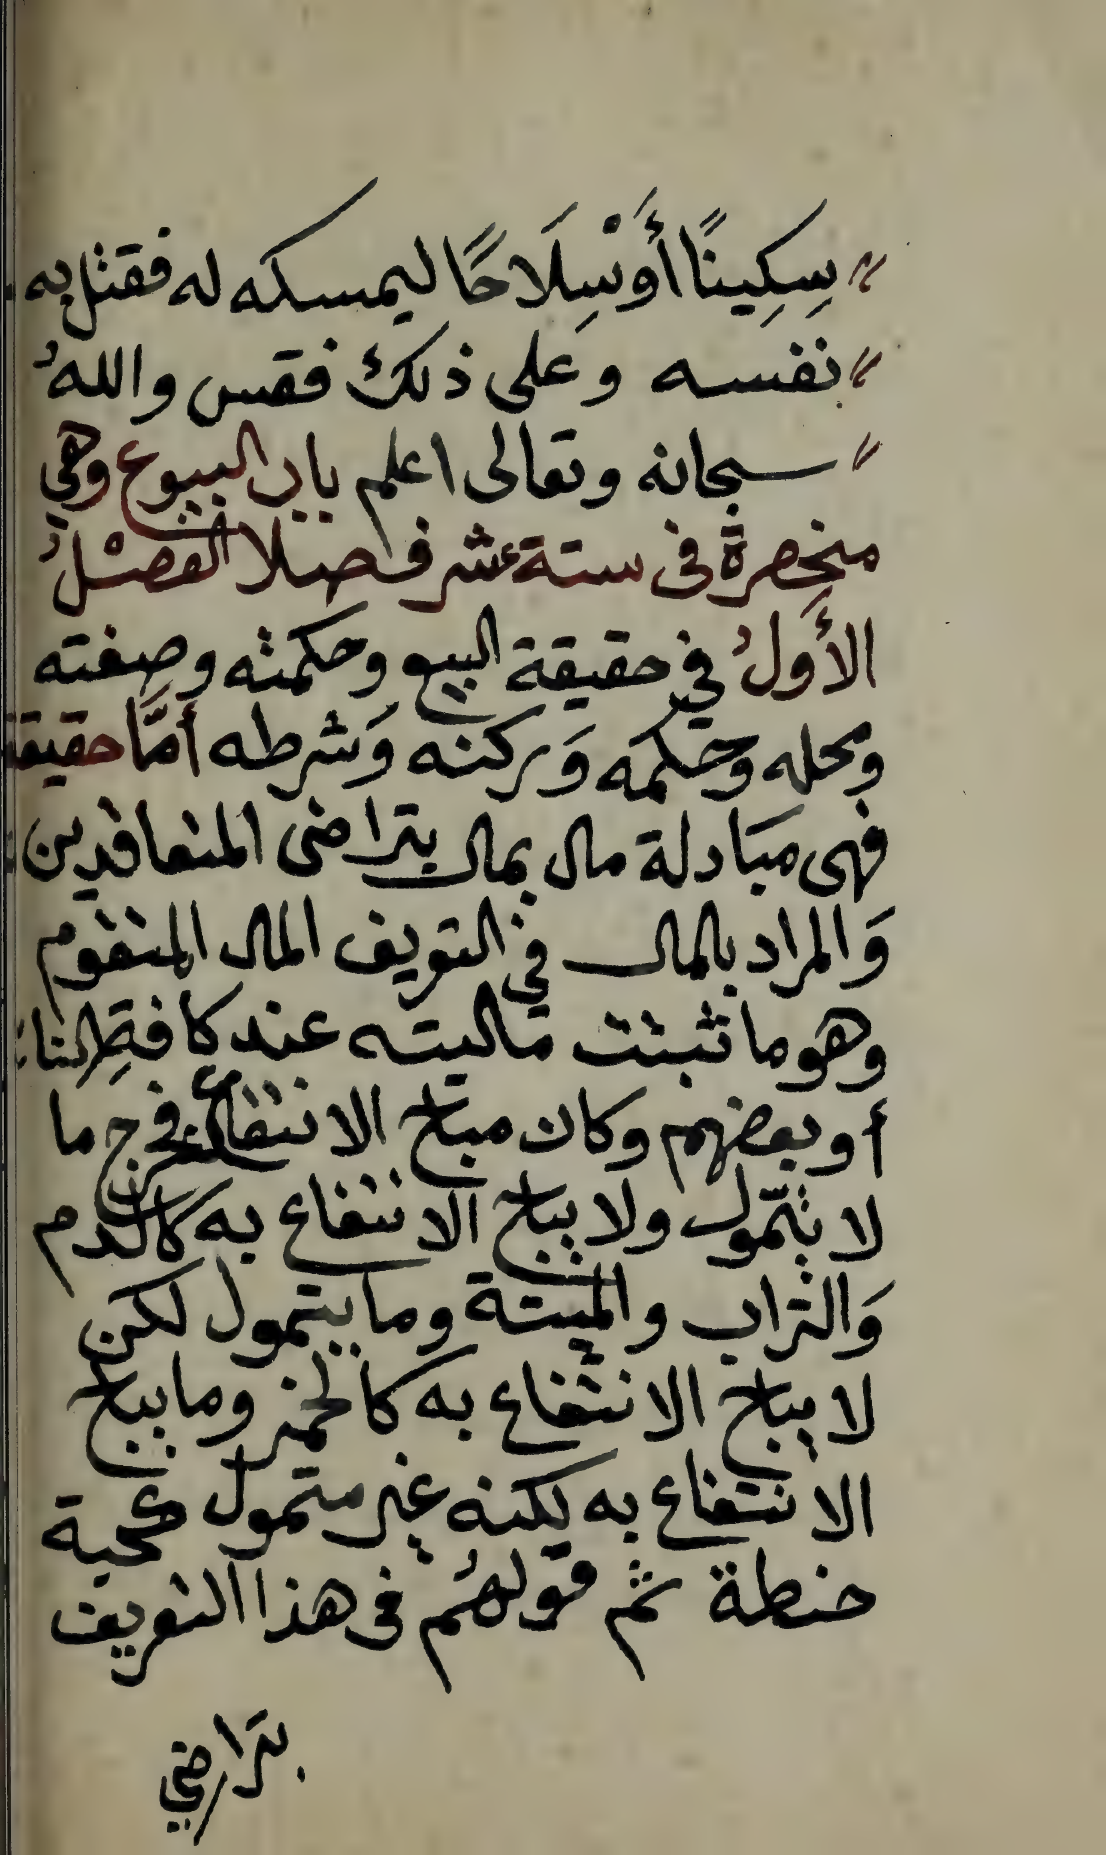 سِكِينًا أَوْ سِلَاحًا ليمسكه له فقتل به
نفسه وعلى ذلك فقس واللهُ
سبحانه وتعالى اعلم باب البيوع وهي
منحصرة في ستة عشر فصلا الفصْلُ
الأَولُ في حقيقة البيع وحكمته وصفته
ومحله وحكمه وَركنه وَشرطه أمَّا حقيقة
فهى مبَادلة مال بمال بتراضى المتعاقدين
وَالمراد بالمال في التعريف المال المتقوم
وهو ما تثبت ماليته عند كافةِ الناس
أو بعضهم وكان مباح الانتفاع فخرج ما
لا يتمّول ولا يباح الانتفاع به كالدم
وَالتراب والميتة وما يتمول لكن
لا يباح الانتفاع به كالخمر وما يباح
الانتفاع به لكنه غير متمول كحبة
حنطة ثم قولهُم في هذا التعريف
بتراضي